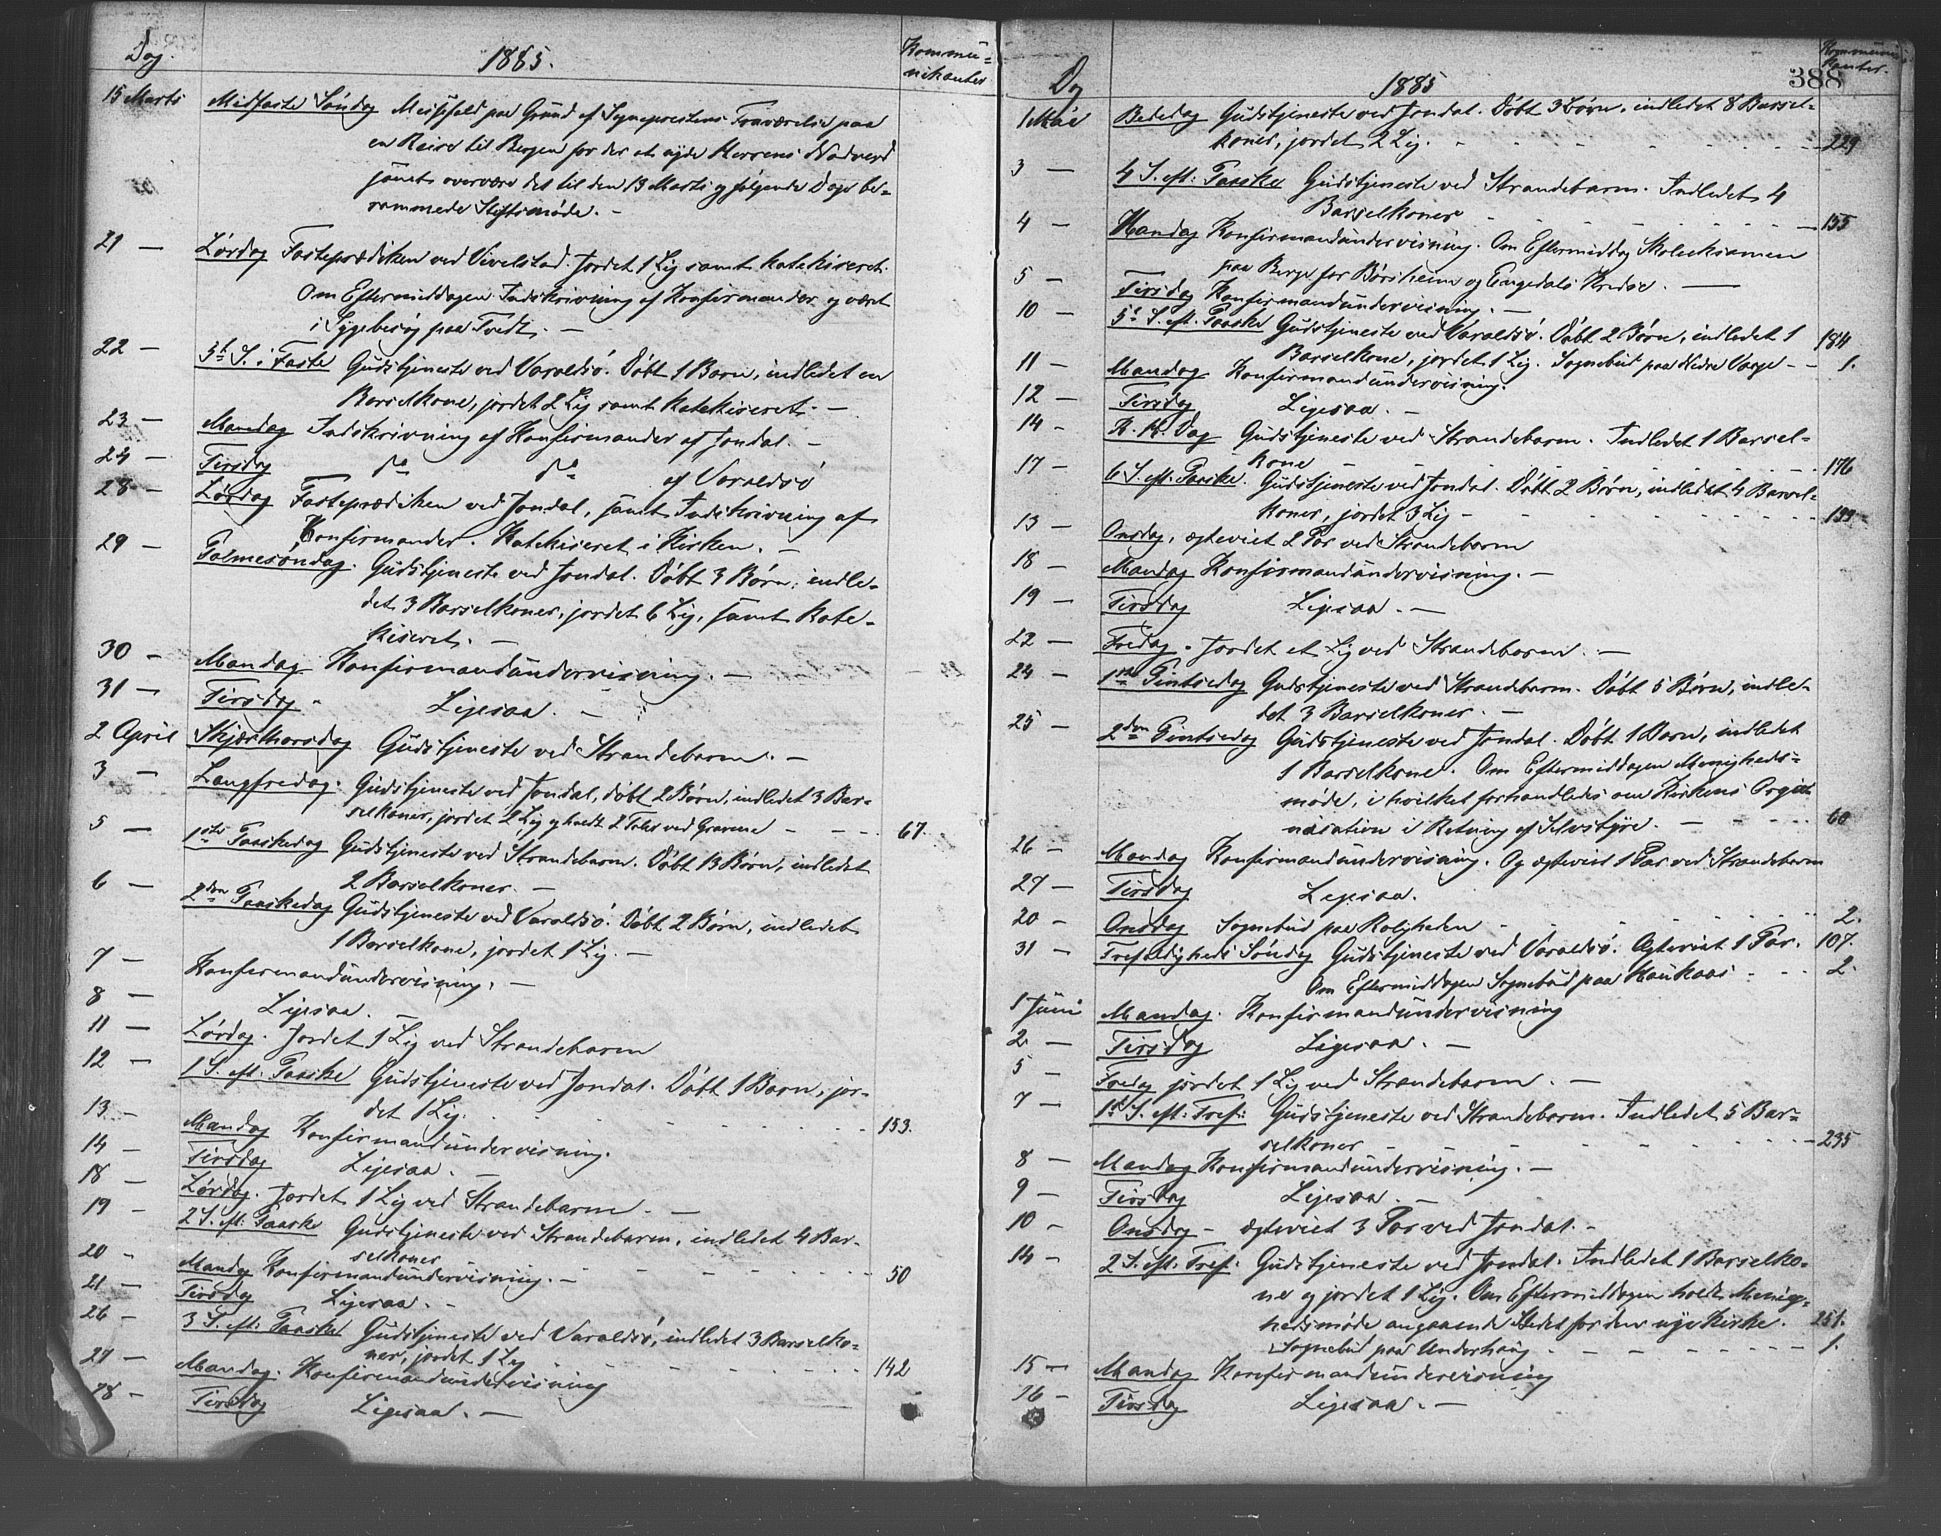 Dag. 1885. Kommu=
nikanter
15 Marts Midfaste Søndag Messefald paa Grund af Sognepræstens Fraværelse paa
en Reise til Bergen for der at nyde Herrens Nadverd
samt overvære det til den 13 Marts og følgende Dage be-
rammede Stiftsmøde. -
21 — Lørdag Fasteprædiken ved Vikelstad. Jordet 1 Lig samt katekiseret.
Om Eftermiddagen Indskrivning af Konfirmander og været
i Sygebesøg paa Tvedt. —
22 — 5te S. i Faste Gudstjeneste ved Varaldsö. Döbt 1 Barn, indledet en
Barselkone, jordet 2 Lig samt katekiseret. —
23 — Mandag Indskrivning af Konfirmander af Jondal. —
24 — Tirsdag do do af Varaldsö
28 — Lørdag Fasteprædiken ved Jondal, samt Indskrivning af
Konfirmander. Katekiseret i Kirken. —
29 — Palmesöndag. Gudstjeneste ved Jondal. Döbt 3 Børn, indle-
det 3 Barselkoner, jordet 6 Lig, samt kate-
kiseret. —
30 — Mandag Konfirmandundervisning. —
31 — Tirsdag - Ligesaa. —
2 April Skjærthorsdag Gudstjeneste ved Strandebarm. —
3 — Langfredag. Gudstjeneste ved Jondal, döbt 2 Børn, indledet 3 Bar-
selkoner, jordet 2 Lig og holdt 2 Taler ved Gravene - - - - 67.
5 — 1ste Paaskedag Gudstjeneste ved Strandebarm. Döbt 13 Børn, indledet
2 Barselkoner. —
6 — 2den Paaskedag Gudstjeneste ved Varaldsö. Döbt 2 Børn, indledet
1 Barselkone, jordet 1 Lig. —
7 — Konfirmandundervisning. —
8 — Ligesaa. —
11 — Lørdag. Jordet 1 Lig ved Strandebarm
12 — 1 S. eft. Paaske Gudstjeneste ved Jondal. Döbt 1 Barn, jor-
det 1 Lig. - - - - - - 153.
13 — Mandag Konfirmandundervisning.
14 — Tirsdag Ligesaa. —
18 — Lørdag. Jordet 1 Lig ved Strandebarm. —
19 — 2 S. eft. Paaske Gudstjeneste ved Strandebarm, indledet 4 Bar-
selkoner - - - - - - 50
20 - Mandag Konfirmandundervisning. —
21 — Tirsdag Ligesaa. -
26 — 3 S. eft: Paaske Gudstjeneste ved Varaldsö, indledet 3 Barselko-
ner, jordet 1 Lig - - - - - - 142
27 — Mandag. Konfirmandundervisning
28 — Tirsdag Ligesaa. —
Dag 1885 Kommuni-
kanter.
388
1 Mai Bededag Gudstjeneste ved Jondal. Döbt 3 Børn, indledet 8 Barsel-
koner, jordet 2 Lig. - - - - - - 229
3 — 4 S. eft: Paaske Gudstjeneste ved Strandebarm. Indledet 4
Barselkoner - - - - - - 155
4 — Mandag Konfirmandundervisning. Om Eftermiddag Skoleeksamen
paa Berge for Børsheim og Engedals Kredse. —
5 — Tirsdag Konfirmandundervisning. —
10 — 5te S. eft. Paaske Gudstjeneste ved Varaldsö. Döbt 2 Børn, indledet 1
Barselkone, jordet 1 Lig. Sognebud paa Nedre Vaage - - 184
1.
11 — Mandag Konfirmandundervisning.
12 — Tirsdag Ligesaa. —
14 — K. H. Dag Gudstjeneste ved Strandebarm. Indledet 1 Barsel-
kone - - - - - - 176
17 — 6 S. eft. Paaske. Gudstjeneste ved Jondal. Döbt 2 Børn, indledet 4 Barsel-
koner, jordet 3 Lig - - - - - - 199
13 — Onsdag, ægteviet 2 Par ved Strandebarm
18 — Mandag Konfirmandundervisning. —
19 — Tirsdag Ligesaa. —
22 — Fredag. Jordet et Lig ved Strandebarm. —
24 — 1ste Pintsedag Gudstjeneste ved Strandebarm. Döbt 5 Børn, indle-
det 3 Barselkoner. —
25 — 2den Pintsedag Gudstjeneste ved Jondal. Döbt 1 Barn, indledet
1 Barselkone. Om Eftermiddagen Menigheds=
møde, i hvilket forhandledes om Kirkens Orga-
nisation i Retning af Selvstyre. - - - - 60
26 — Mandag Konfirmandundervisning. Og ægteviet 1 Par ved Strandebarm
27 — Tirsdag Ligesaa.
20 — Onsdag Sognebud paa Roligheden - - - - - - 2.
31 — Trefoldigheds Söndag Gudstjeneste ved Varaldsö. Ægteviet 1 Par. 107.
Om Eftermiddagen Sognebud paa Haukaas - - - 2.
1 Juni Mandag. Konfirmandundervisning
2 — Tirsdag Ligesaa. —
5 — Fredag jordet 1 Lig ved Strandebarm. —
7 — 1ste S. eft: Tref: Gudstjeneste ved Strandebarm. Indledet 5 Bar-
selkoner - - - - - - 235
8 — Mandag Konfirmandundervisning. —
9 — Tirsdag Ligesaa. —
10 — Onsdag - ægteviet 3 Par ved Jondal. -
14 — 2 S. eft. Tref: Gudstjeneste ved Jondal. Indledet 1 Barselko-
ne og jordet 1 Lig. Om Eftermiddagen holdt Menig-
hedsmøde angaaende Stedet for den nye Kirke. 251.
Sognebud paa Underhaug - - - - - - 1.
15 — Mandag Konfirmandundervisning
16 — Tirsdag Ligesaa. —